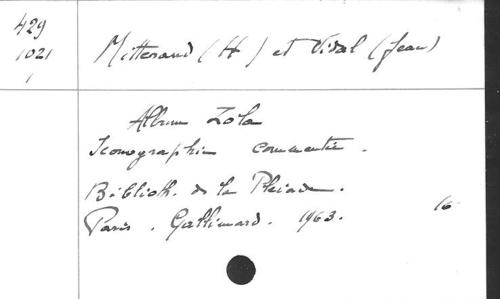 429
1021
1
Mitterand (H) et Vidal (Jean)
Album Zola
Iconographie commentée.
Biblioth. de la Pléiade.
Paris. Gallimard. 1963. 16